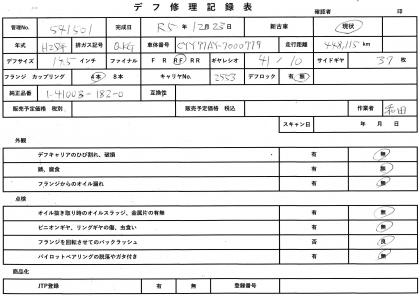 デフ修理記録表
確認者 印
管理No. 541501 完成日 R5年12月23日 新古車 現状
年式 H28年 排ガス記号 QKG 車体番号 CYY77AY-7000779 走行距離 448,115 km
デフサイズ 19.5 インチ ファイナル F R RF RR ギヤレシオ 41/10 サイドギヤ 37 枚
フランジ カップリング 4本 8本 キャリヤNo. 2553 デフロック 有 無
純正品番 1-41003-182-0 互換性
販売予定価格 税別 販売予定価格 税込 作業者 和田
スキャン日 年 月 日
外観
デフキャリアのひび割れ、破損 有 無
錆、腐食 有 無
フランジからのオイル漏れ 有 無
点検
オイル抜き取り時のオイルスラッジ、金属片の有無 有 無
ピニオンギヤ、リングギヤの傷、虫食い 有 無
フランジを回転させてのバックラッシュ 否 良
パイロットベアリングの脱落やガタ付き 有 無
商品化
JTP登録 有 無 登録番号